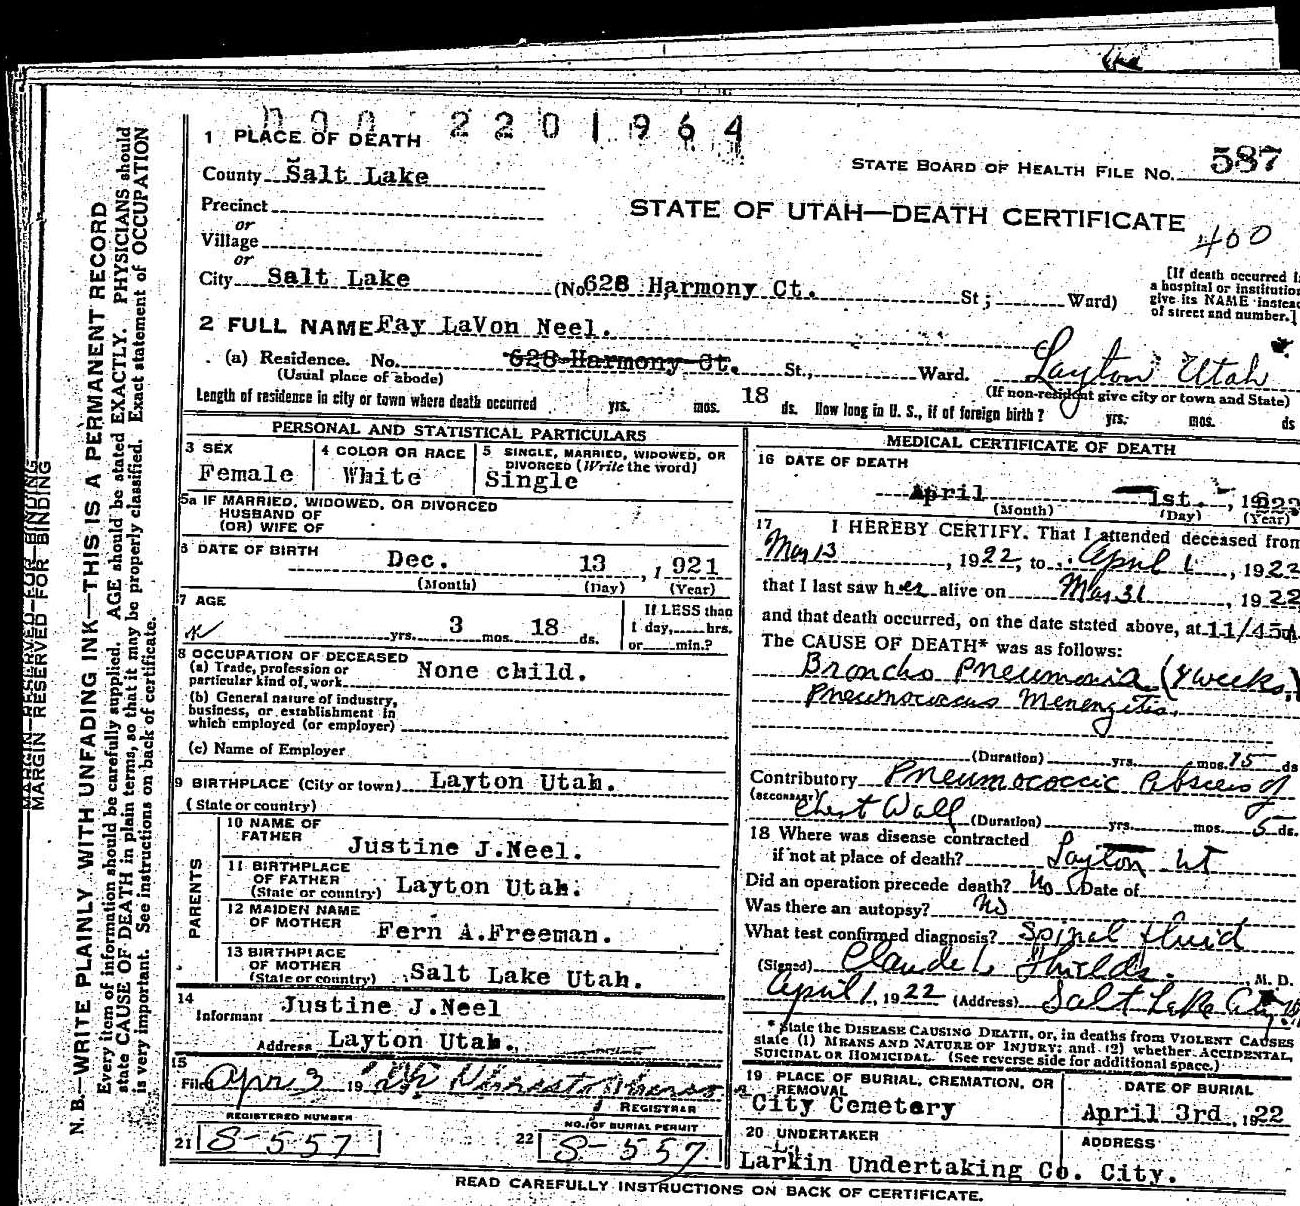 220 1964
1 PLACE OF DEATH
STATE BOARD OF HEALTH FILE No. 587
County Salt Lake
Precinct
STATE OF UTAH—DEATH CERTIFICATE
or
400
Village
or
City Salt Lake (No 628 Harmony Ct. St; Ward)
[If death occurred i
a hospital or institution
give its NAME instead
of street and number.]
2 FULL NAME Fay LaVon Neel.
(a) Residence. No. 628 Harmony Ct. St., Ward. Layton Utah
(Usual place of abode) (If non-resident give city or town and State)
Length of residence in city or town where death occurred yrs. mos. 18 ds. How long in U. S., if of foreign birth? yrs. mos. ds
PERSONAL AND STATISTICAL PARTICULARS
3 SEX
Female
4 COLOR OR RACE
White
5 SINGLE, MARRIED, WIDOWED, OR
DIVORCED (Write the word)
Single
5a IF MARRIED, WIDOWED, OR DIVORCED
HUSBAND OF
(OR) WIFE OF
6 DATE OF BIRTH
Dec. 13, 1921
(Month) (Day) (Year)
7 AGE
yrs. 3 mos. 18 ds.
If LESS than
1 day, hrs.
or min.?
8 OCCUPATION OF DECEASED
(a) Trade, profession or
particular kind of work None child.
(b) General nature of industry,
business, or establishment in
which employed (or employer)
(c) Name of Employer
9 BIRTHPLACE (City or town) Layton Utah.
(State or country)
PARENTS
10 NAME OF
FATHER Justine J.Neel.
11 BIRTHPLACE
OF FATHER
(State or country) Layton Utah.
12 MAIDEN NAME
OF MOTHER Fern A.Freeman.
13 BIRTHPLACE
OF MOTHER
(State or country) Salt Lake Utah.
14
Informant Justine J.Neel
Address Layton Utah.
15
Filed Apr 3 19
REGISTRAR
REGISTERED NUMBER
21 S-557
NO. OF BURIAL PERMIT
22 S-557
MEDICAL CERTIFICATE OF DEATH
16 DATE OF DEATH
April 1st., 1922
(Month) (Day) (Year)
17 I HEREBY CERTIFY, That I attended deceased from
Mar 13, 1922, to April 1, 1922
that I last saw her alive on Mar 31, 1922
and that death occurred, on the date stated above, at 11/45
The CAUSE OF DEATH* was as follows:
Broncho Pneumonia (4 weeks.)
Pneumococcus Menengitis
(Duration) yrs. mos. 15 ds
Contributory Pneumococcic Abscess of
(SECONDARY) Chest Wall
(Duration) yrs. mos. 5 ds.
18 Where was disease contracted
if not at place of death? Layton Ut
Did an operation precede death? No Date of
Was there an autopsy? No
What test confirmed diagnosis? Spinal fluid
(Signed) Claude L Shields. M. D.
April 1, 1922 (Address) Salt Lake City.
* State the DISEASE CAUSING DEATH, or, in deaths from VIOLENT CAUSES
state (1) MEANS AND NATURE OF INJURY; and (2) whether ACCIDENTAL,
SUICIDAL OR HOMICIDAL. (See reverse side for additional space.)
19 PLACE OF BURIAL, CREMATION, OR
REMOVAL
City Cemetery
DATE OF BURIAL
April 3rd, 1922
20 UNDERTAKER
Larkin Undertaking Co.
ADDRESS
City.
READ CAREFULLY INSTRUCTIONS ON BACK OF CERTIFICATE.
MARGIN RESERVED FOR BINDING
N. B.—WRITE PLAINLY WITH UNFADING INK—THIS IS A PERMANENT RECORD
Every item of information should be carefully supplied. AGE should be stated EXACTLY. PHYSICIANS should
state CAUSE OF DEATH in plain terms, so that it may be properly classified. Exact statement of OCCUPATION
is very important. See instructions on back of certificate.